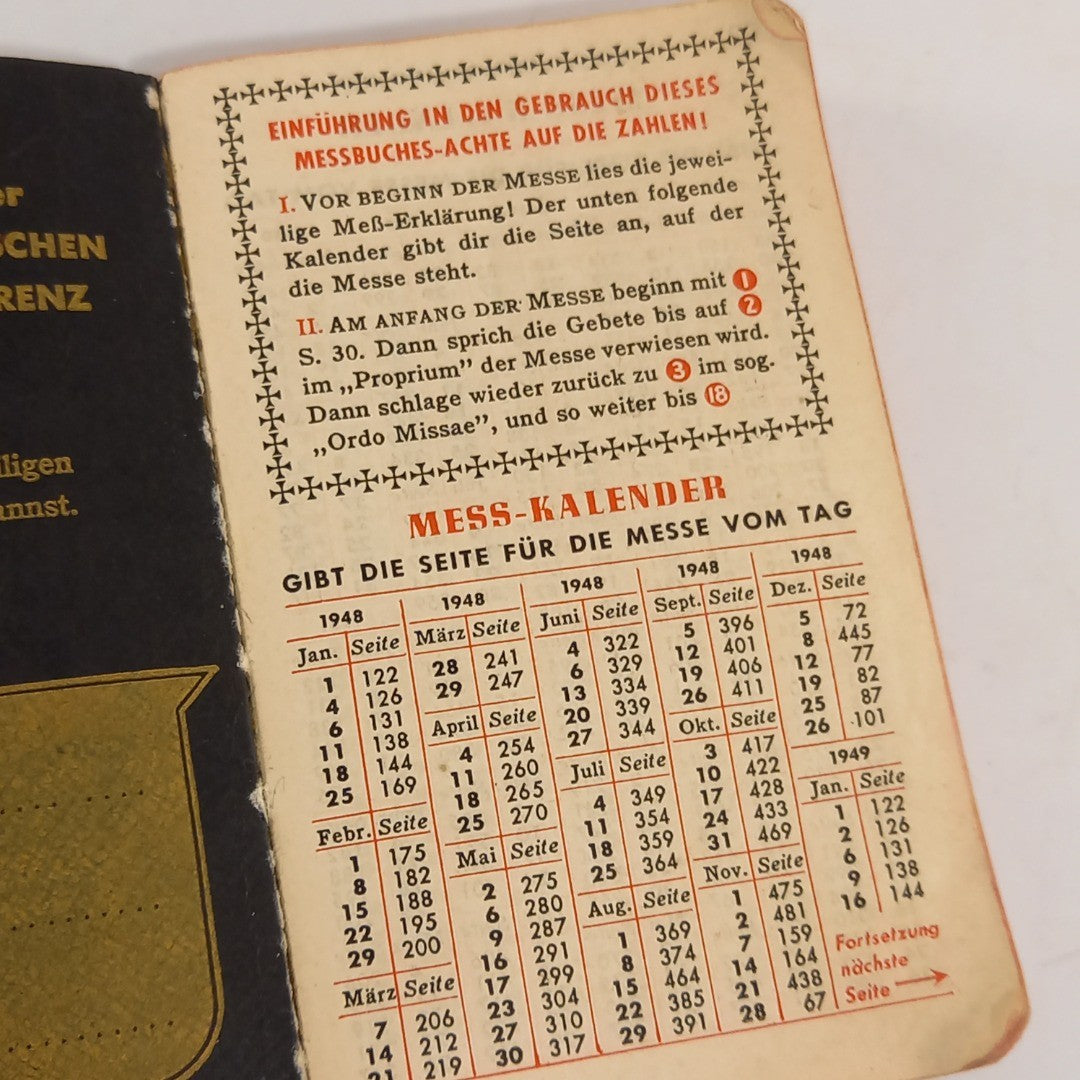 er
SCHEN
RENZ
ligen
annst.
EINFÜHRUNG IN DEN GEBRAUCH DIESES
MESSBUCHES-ACHTE AUF DIE ZAHLEN!
I. VOR BEGINN DER MESSE lies die jewei-
lige Meß-Erklärung! Der unten folgende
Kalender gibt dir die Seite an, auf der
die Messe steht.
II. AM ANFANG DER MESSE beginn mit 1
S. 30. Dann sprich die Gebete bis auf 2
im „Proprium” der Messe verwiesen wird.
Dann schlage wieder zurück zu 3 im sog.
„Ordo Missae”, und so weiter bis 18
MESS-KALENDER
GIBT DIE SEITE FÜR DIE MESSE VOM TAG
1948
Jan. Seite
1 122
4 126
6 131
11 138
18 144
25 169
Febr. Seite
1 175
8 182
15 188
22 195
29 200
März Seite
7 206
14 212
21 219
1948
März Seite
28 241
29 247
April Seite
4 254
11 260
18 265
25 270
Mai Seite
2 275
6 280
9 287
16 291
17 299
23 304
27 310
30 317
1948
Juni Seite
4 322
6 329
13 334
20 339
27 344
Juli Seite
4 349
11 354
18 359
25 364
Aug. Seite
1 369
8 374
15 464
22 385
29 391
1948
Sept. Seite
5 396
12 401
19 406
26 411
Okt. Seite
3 417
10 422
17 428
24 433
31 469
Nov. Seite
1 475
2 481
7 159
14 164
21 438
28 67
1948
Dez. Seite
5 72
8 445
12 77
19 82
25 87
26 101
1949
Jan. Seite
1 122
2 126
6 131
9 138
16 144
Fortsetzung
nächste
Seite